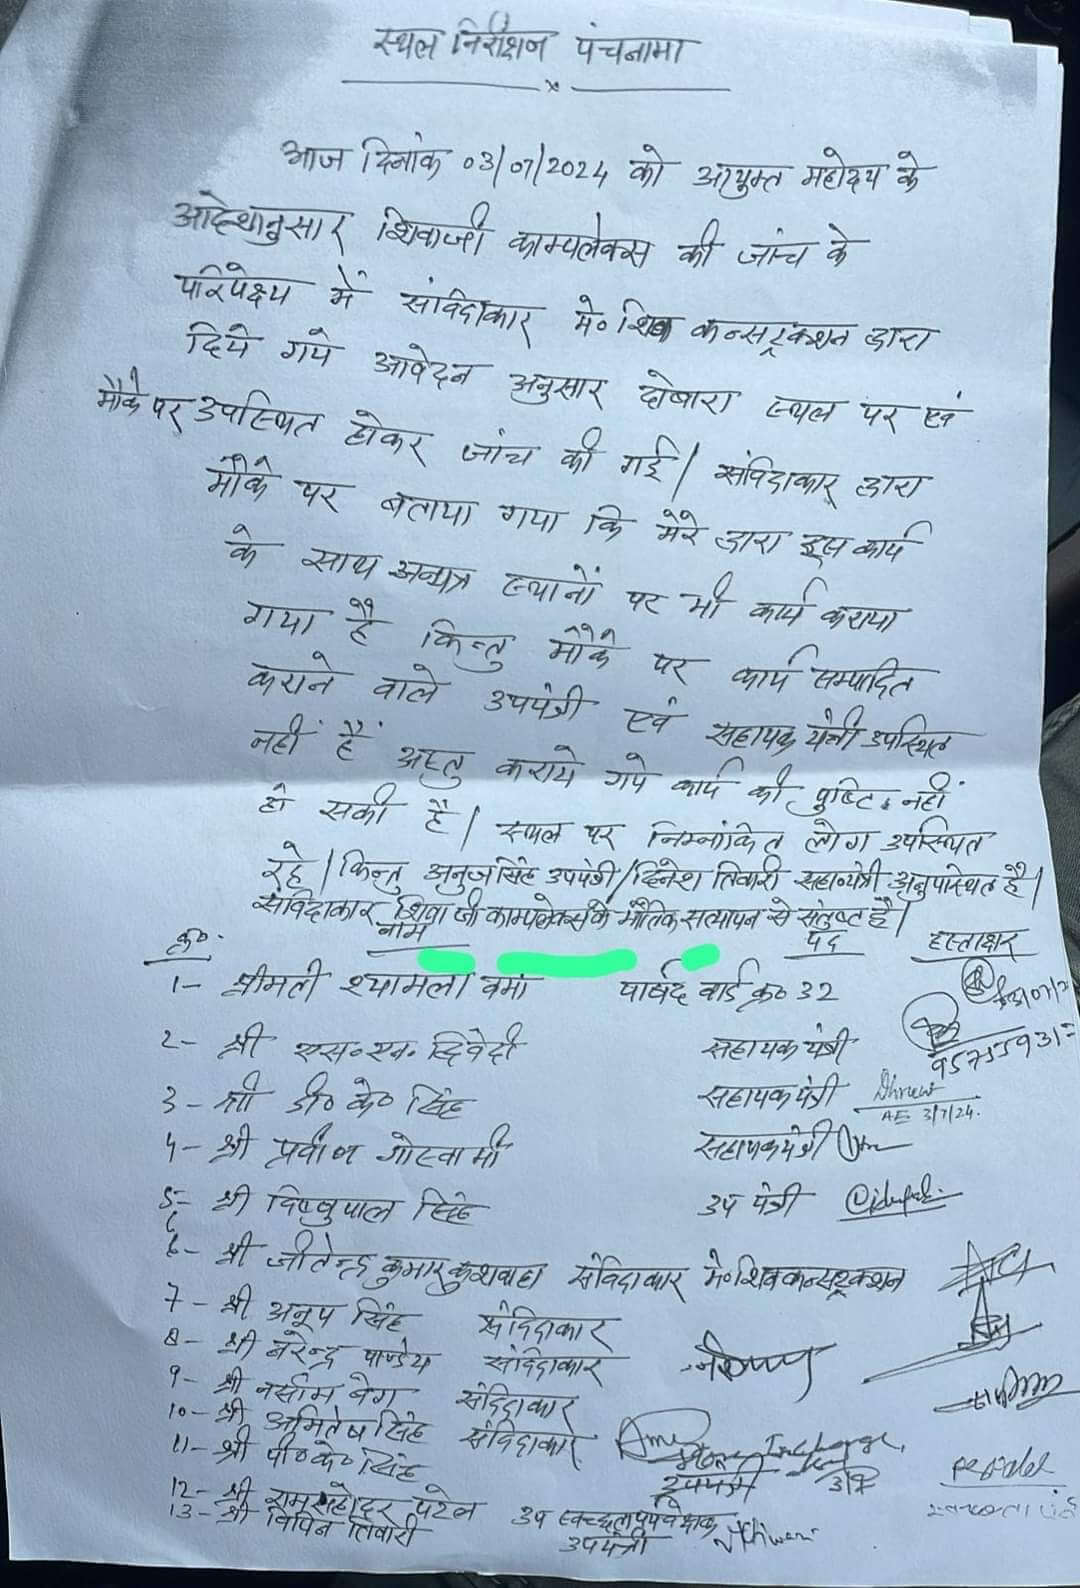 स्थल निरीक्षण पंचनामा
आज दिनांक 03/07/2024 को आयुक्त महोदय के
आदेशानुसार शिवाजी काम्पलेक्स की जांच के
परिपेक्ष्य में संविदाकार मे० शिव कन्सट्रक्शन द्वारा
दिये गये आवेदन अनुसार दोबारा स्थल पर एवं
मौके पर उपस्थित होकर जांच की गई। संविदाकार द्वारा
मौके पर बताया गया कि मेरे द्वारा इस कार्य
के साथ अन्यत्र स्थानों पर भी कार्य कराया
गया है किन्तु मौके पर कार्य सम्पादित
कराने वाले उपयंत्री एवं सहायक यंत्री उपस्थित
नहीं हैं अस्तु कराये गये कार्य की पुष्टि नहीं
हो सकी है। स्थल पर निम्नांकित लोग उपस्थित
रहे। किन्तु अनुज सिंह उपयंत्री/दिनेश तिवारी सहा०यंत्री अनुपस्थित है।
संविदाकार शिवा जी काम्पलेक्स के भौतिक सत्यापन से संतुष्ट है।
क्र० नाम पद हस्ताक्षर
1- श्रीमती श्यामला वर्मा पार्षद वार्ड क्र० 32
2- श्री एस० एन० द्विवेदी सहायक यंत्री
3- श्री डी० के० सिंह सहायक यंत्री
AE 3/7/24.
4- श्री प्रवीण गोस्वामी सहायक यंत्री
5- श्री विष्णुपाल सिंह उप यंत्री
6- श्री जीतेन्द्र कुमार कुशवाहा संविदाकार मे० शिव कन्सट्रक्शन
7- श्री अनूप सिंह संविदाकार
8- श्री नरेन्द्र पाण्डेय संविदाकार
9- श्री नसीम बेग संविदाकार
10- श्री अमितेष सिंह संविदाकार
11- श्री पी० के० सिंह
उपयंत्री
12- श्री रामसहोदर पटेल उप स्वच्छता पर्यवेक्षक
13- श्री विपिन तिवारी उपयंत्री